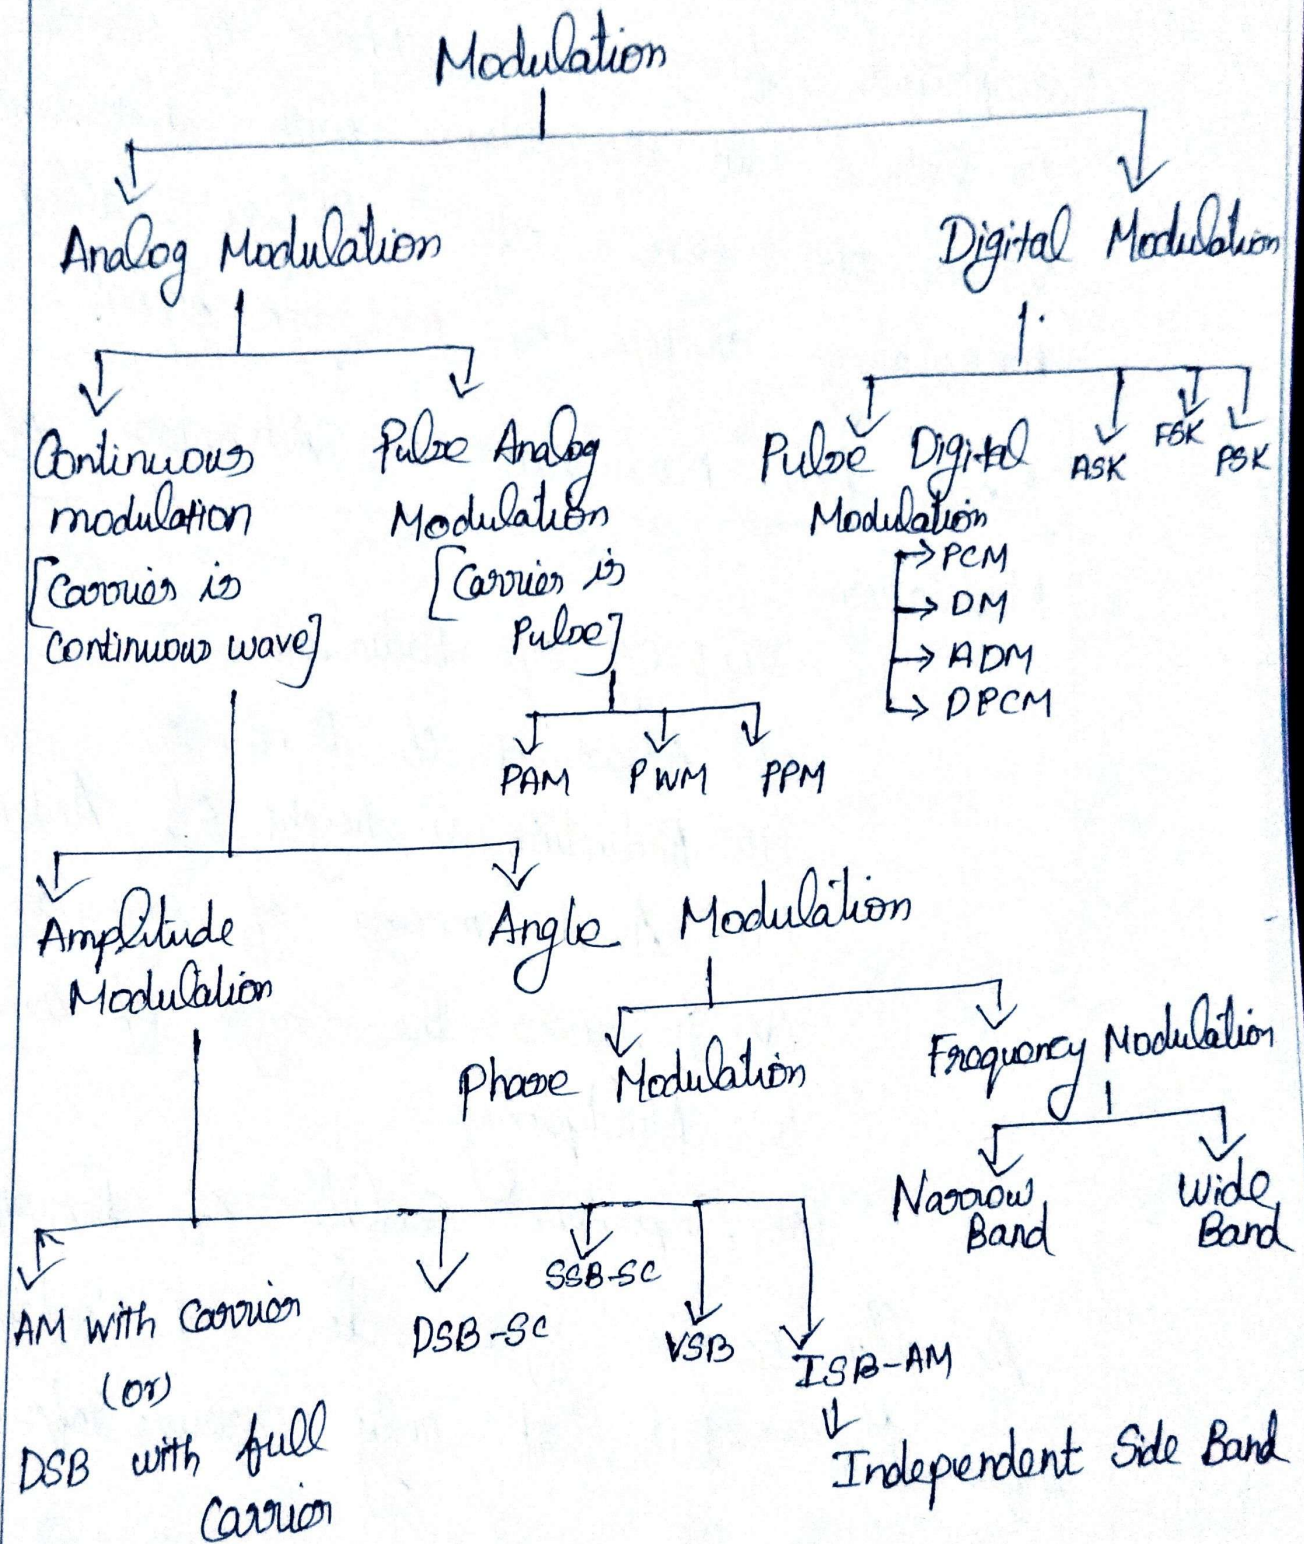 Modulation
Analog Modulation
Digital Modulation
Continuous
modulation
[Carrier is
Continuous wave]
Pulse Analog
Modulation
[Carrier is
Pulse]
PAM
PWM
PPM
Pulse Digital
Modulation
PCM
DM
ADM
DPCM
ASK
FSK
PSK
Amplitude
Modulation
Angle Modulation
Phase Modulation
Frequency Modulation
Narrow
Band
Wide
Band
AM with Carrier
(or)
DSB with full
Carrier
DSB-SC
SSB-SC
VSB
ISB-AM
Independent Side Band